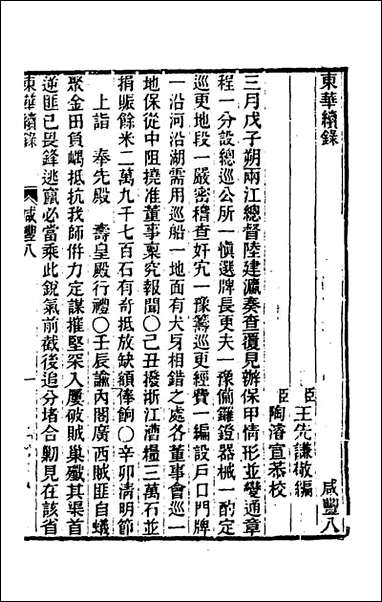 東華續錄　咸豐八
臣王先謙敬編
臣陶濬宣恭校
三月戊子朔兩江總督陸建瀛奏查覆見辦保甲情形並變通章
程一分設總巡公所一愼選牌長更夫一豫備鑼鐙器械一酌定
巡更地段一嚴密稽查奸宄一豫籌巡更經費一編設戶口門牌
一沿河沿湖需用巡船一地面有犬牙相錯之處各董事會巡一
地保從中阻撓准董事稟究報聞〇己丑撥浙江漕糧三萬石並
捐賑餘米二萬九千七百石有奇抵放缺額俸餉〇辛卯清明節
上詣　奉先殿　壽皇殿行禮〇壬辰諭內閣廣西賊匪自蟻
聚金田負嵎抵抗我師倂力定謀摧堅深入屢破賊巢殲其渠首
逆匪已畏鋒逃竄必當乘此銳氣前截後追分堵合勦見在該省
東華續錄　咸豐八　一